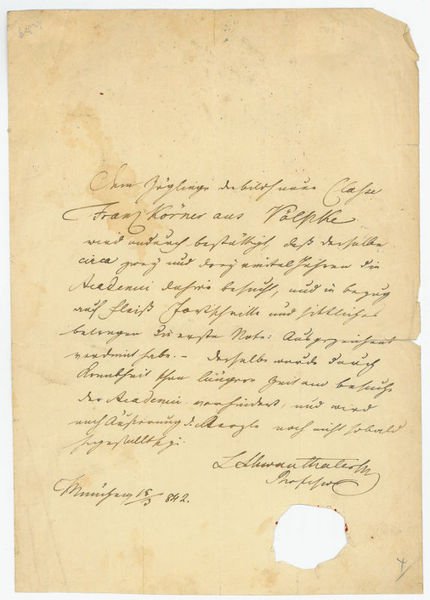 Dem Zöglinge der bildhauer Classe
Franz Körner aus Völpke
wird andurch bestättigt, daß derselbe
circa zwey und drey viertel Jahren die
Academie dahier besucht, und in bezug
auf Fleiß Fortschritte und sittliches
betragen die erste Note: Ausgezeichnet
verdient habe. – derselbe wurde durch
Krankheit schon längere Zeit am besuche
der Academie verhindert, und wird
nach Äußerung d: Aerzte noch nicht sobald
hergestellt seyn.
L Schwanthaler
Professor
München 18/3 842.